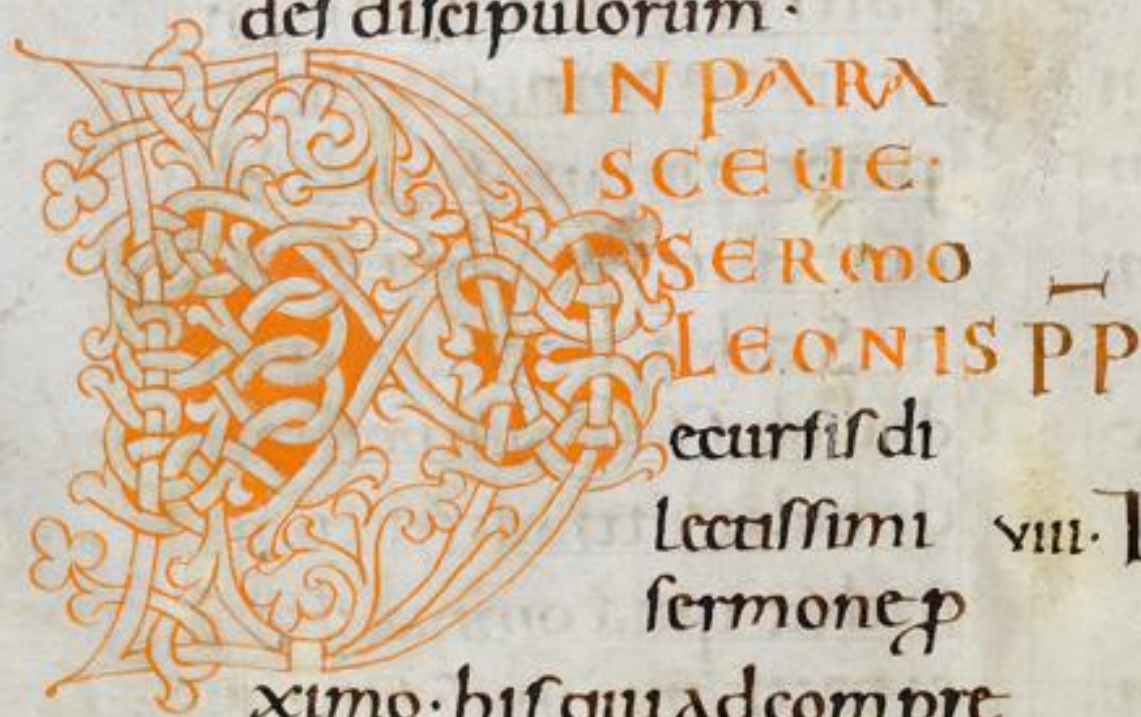 des discipulorum·
IN PARA
SCEUE·
SERMO
LEONIS PP
Decursis di
lectissimi VIII·
sermone p
ximo· his qui ad compre